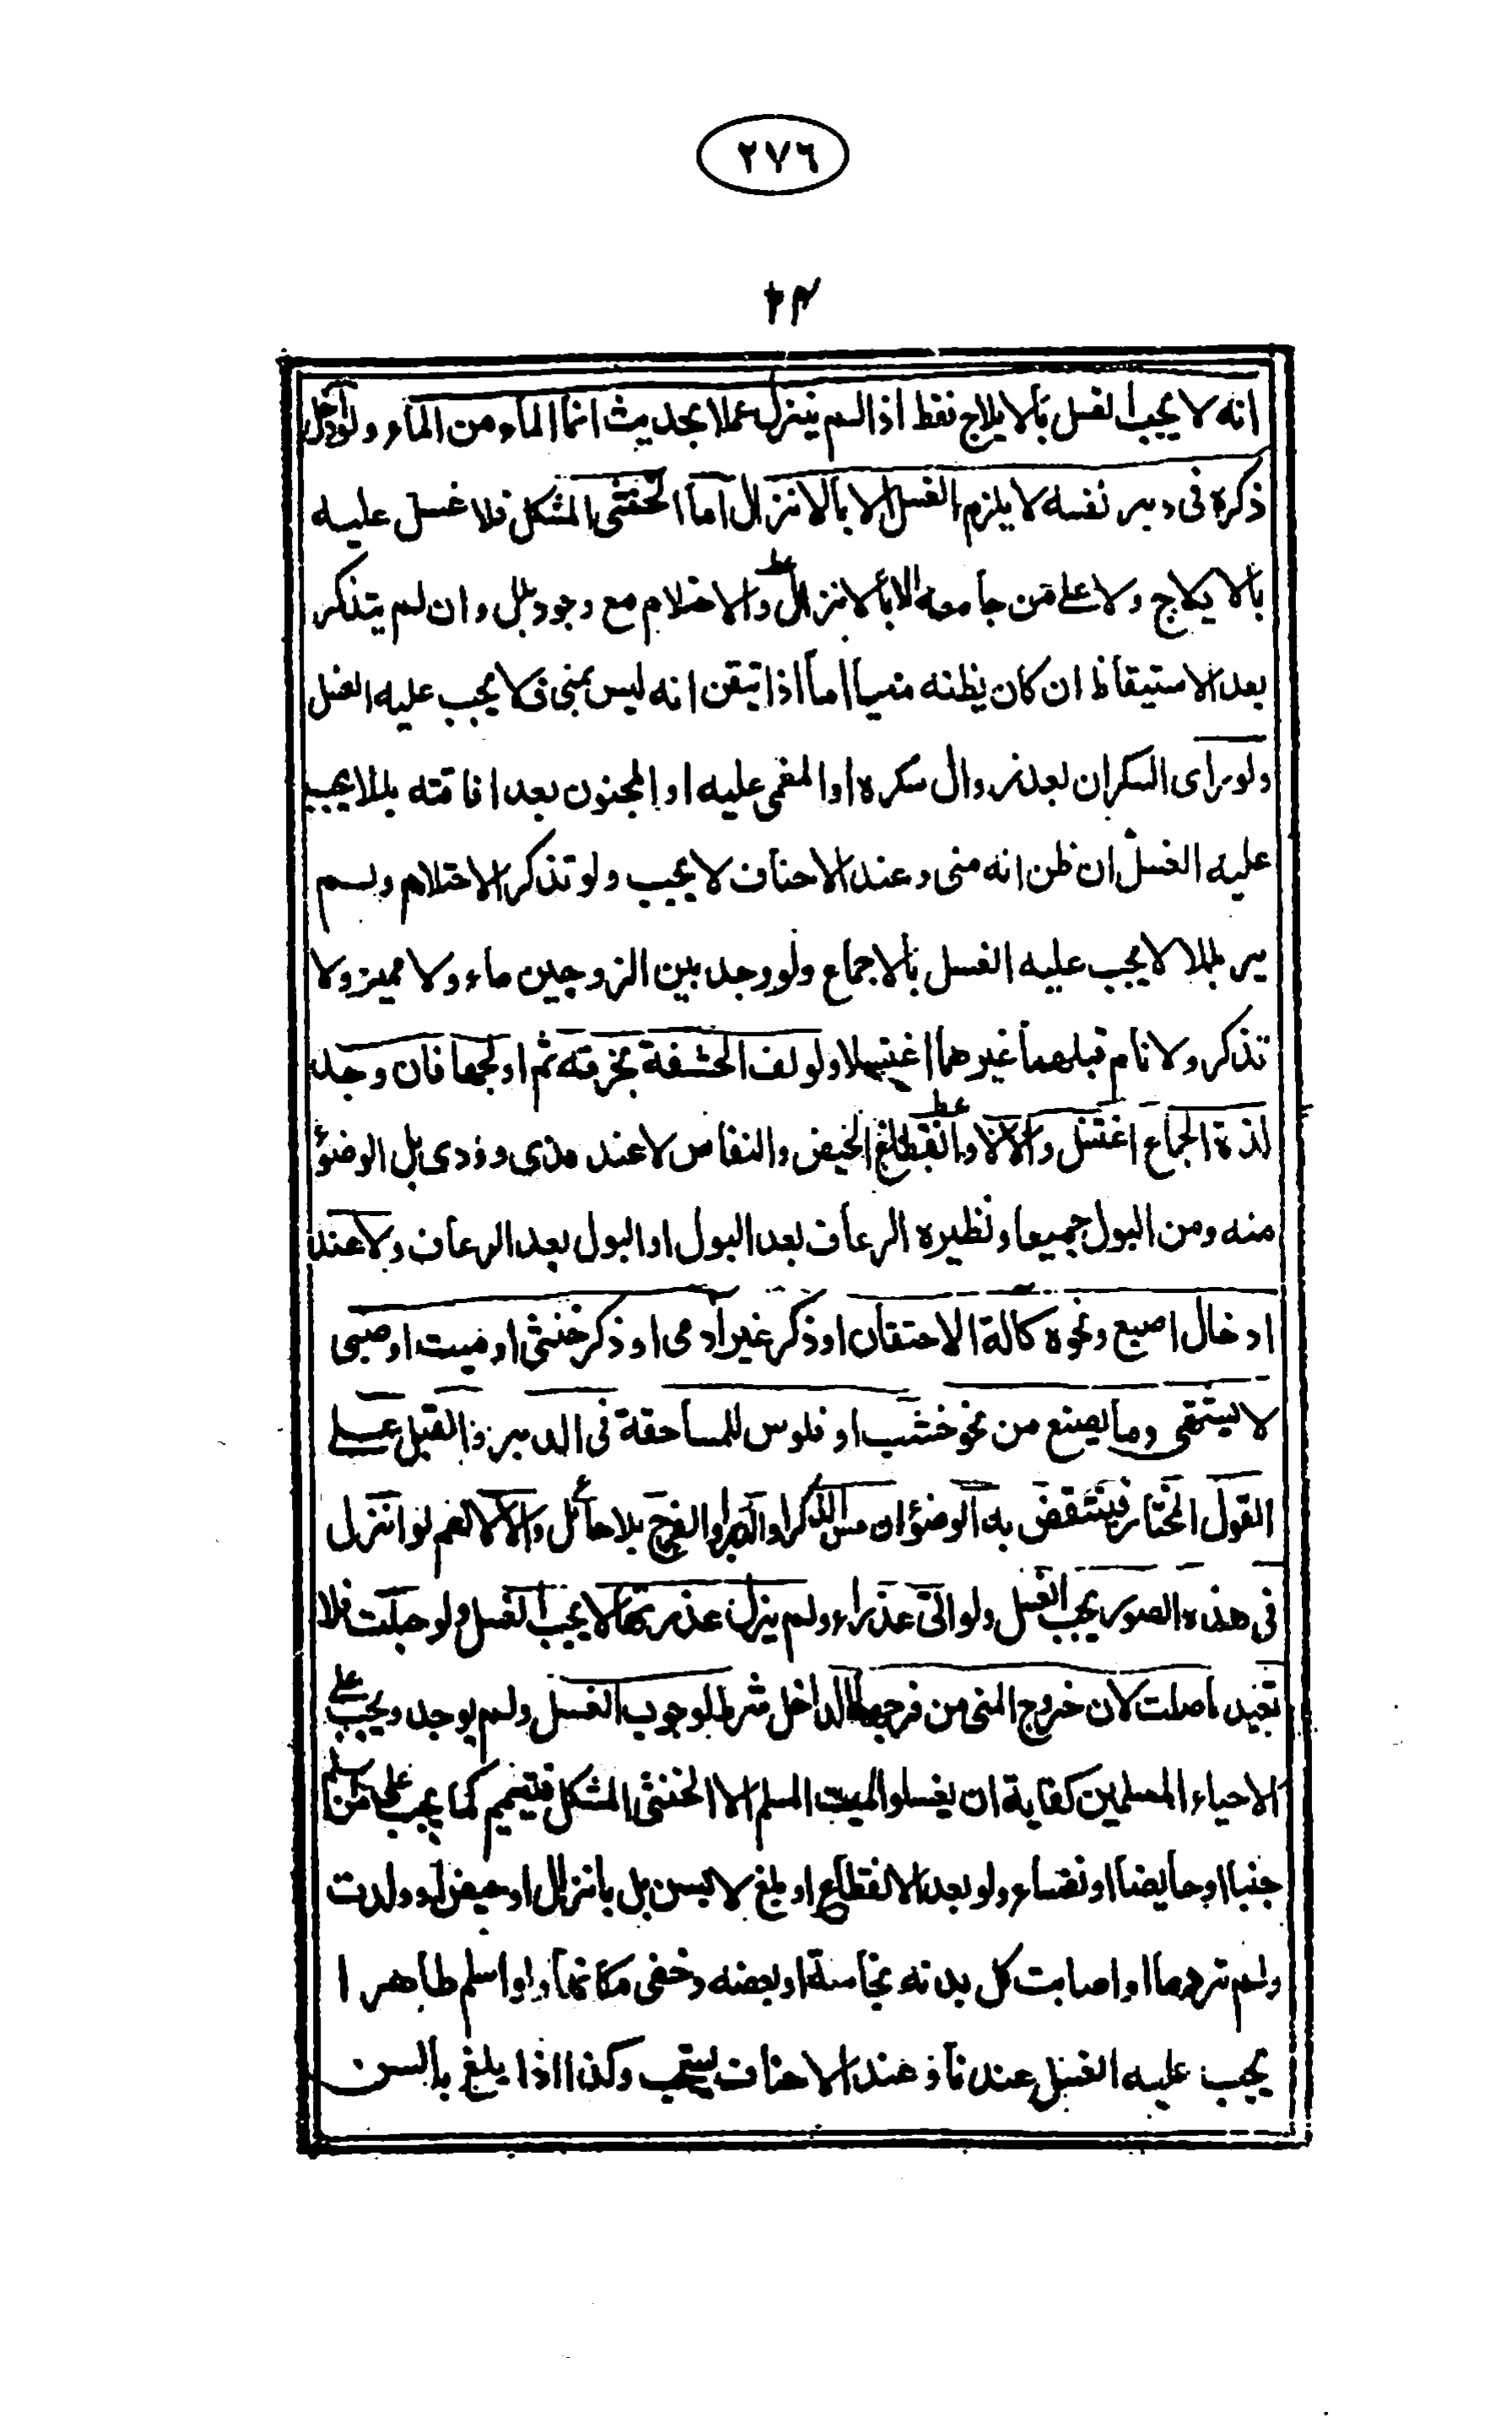 ٢٧٦
٢٣
انه لا يجب الغسل بالايلاج فقط اذا لم ينزل عملا بحديث انما الماء من الماء ولو ادخل
ذكره فى دبر نفسه لا يلزم الغسل الا بالانزال اما الخنثى المشكل فلا غسل عليه
بالايلاج ولا على من جامعه الا بالانزال والاحتلام مع وجود بلل وان لم يتذكر
بعد الاستيقاظ ان كان يظنه منيا اما اذا تيقن انه ليس بمنى فلا يجب عليه الغسل
ولو راى السكران بعد زوال سكره او المغمى عليه او المجنون بعد افاقته بللا يجب
عليه الغسل ان ظن انه منى وعند الاحناف لا يجب ولو تذكر الاحتلام ولم
ير بللا لا يجب عليه الغسل بالاجماع ولو وجد بين الزوجين ماء ولا مميز ولا
تذكر ولا نام قبلهما غيرهما اغتسلا ولو لف الحشفة بخرقة ثم اولجها فان وجد
لذة الجماع اغتسل والا لا وانقطاع الحيض والنفاس لا عند مذى وودى بل الوضوٴ
منه ومن البول جميعا ونظيره الرعاف بعد البول او البول بعد الرعاف ولا عند
ادخال اصبع ونحوه كآلة الاحتقان او ذكر غير آدمى او ذكر خنثى او ميت او صبى
لا يشتهى وما يصنع من نحو خشب او فلوس للمساحقة فى الدبر والقبل على
القول المختار فينتقض به الوضوٴ ان مس الذكر او الدبر او الفرج بلا حائل والا لا نعم لو انزل
فى هذه الصور يجب الغسل ولو اتى عذراء ولم يزل عذرتها لا يجب الغسل ولو حبلت فلا
تعيد ما صلت لان خروج المنى من فرجها الداخل شرط لوجوب الغسل ولم يوجد ويجب على
الاحياء المسلمين كفاية ان يغسلوا الميت المسلم الا الخنثى المشكل فتيمم كما يجب على من اسلم
جنبا او حايضا او نفساء ولو بعد الانقطاع او بلغ لا بسن بل بانزال او حيض او ولدت
ولم تر دما او اصابت كل بدنه نجاسة او بعضه وخفى مكانها ولو اسلم طاهرا
يجب عليه الغسل عندنا وعند الاحناف يستحب وكذا اذا بلغ بالسن